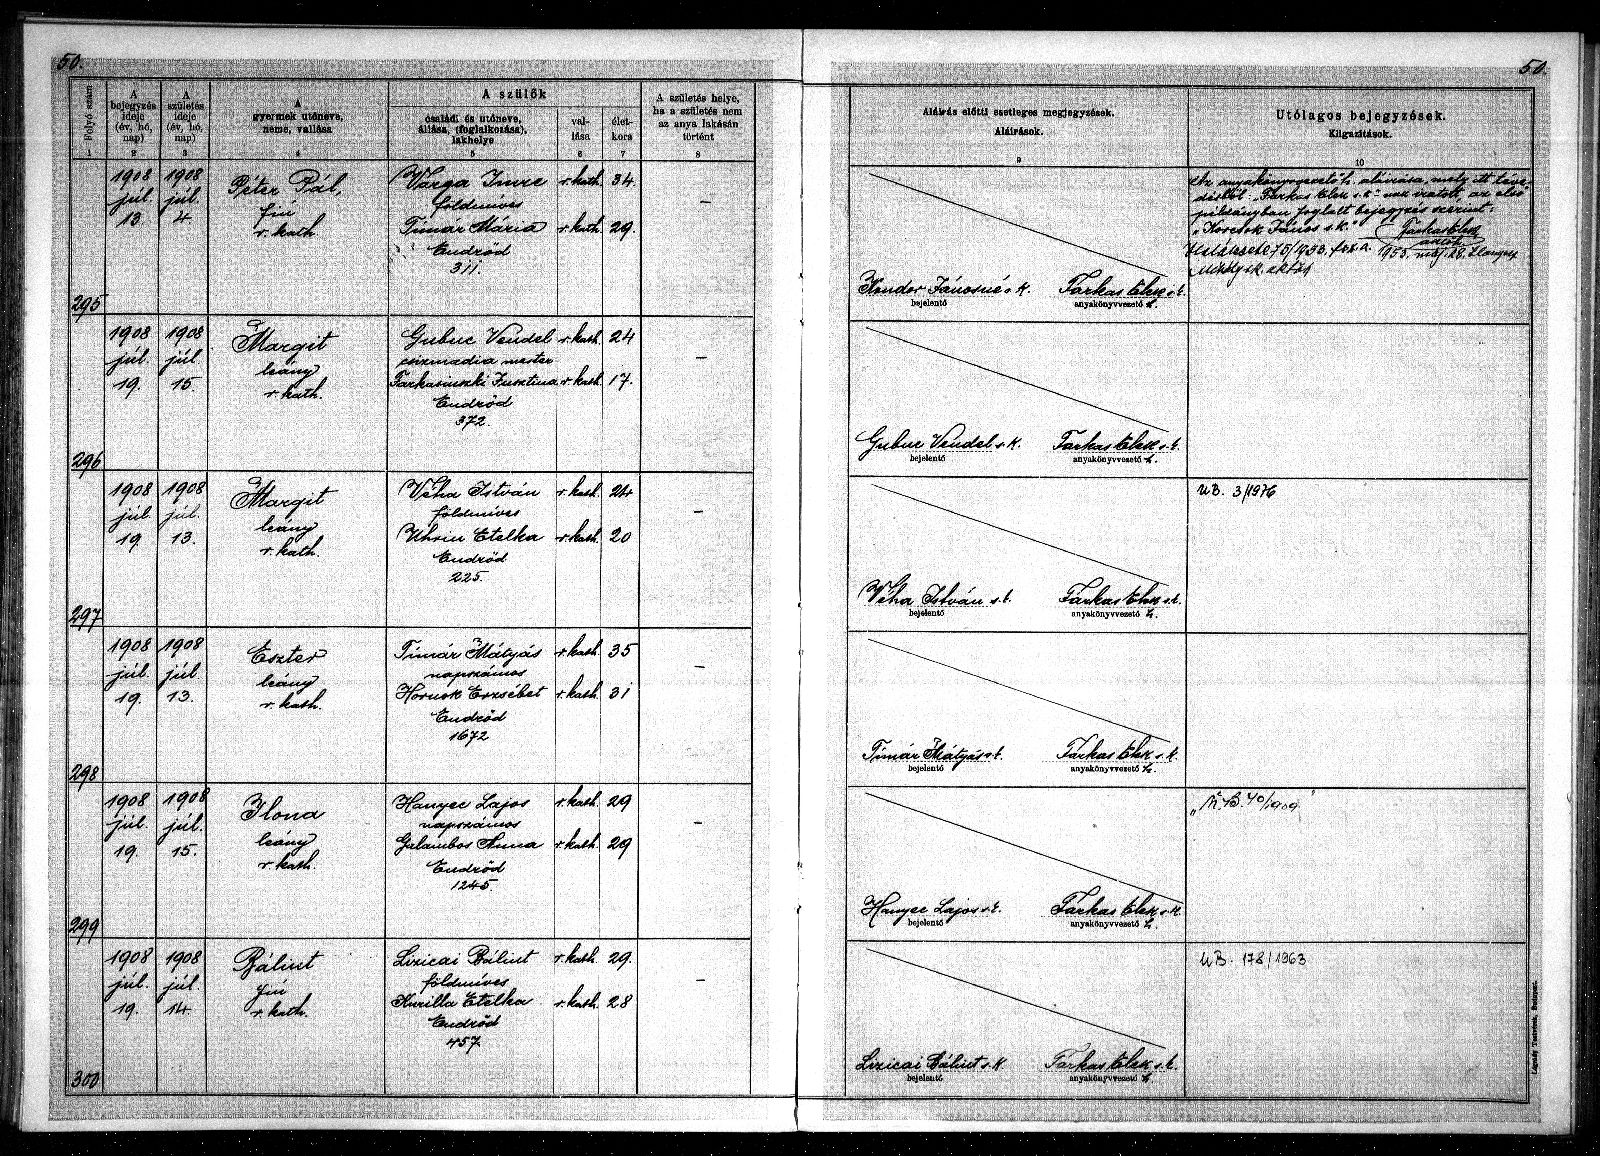 50.
50.
Folyó szám
A bejegyzés ideje (év, hó, nap)
A születés ideje (év, hó, nap)
A gyermek utóneve, neme, vallása
A szülők
családi és utóneve, állása, (foglalkozása), lakhelye
vallása
életkora
A születés helye, ha a születés nem az anya lakásán történt
Aláírás előtti esetleges megjegyzések.
Aláírások.
Utólagos bejegyzések.
Kiigazítások.
1 2 3 4 5 6 7 8 9 10
295
1908 júl. 13
1908 júl. 4
Péter Pál,
fiú
r. kath
Varga Imre r. kath. 34.
földmíves
Tímár Mária r. kath. 29.
Endrőd
311.
—
Kondor Jánosné s. k.
bejelentő
Farkas Elek s. k.
anyakönyvvezető h.
Az anyakönyvvezető h. aláírása, mely itt
"Farkas Elek s. k." az első
példányban foglalt bejegyzés szerint:
296
1908 júl. 19.
1908 júl. 15.
Margit
leány
r. kath.
Gubuc Vendel r. kath. 24
csizmadia mester
Farkasinszki Jusztina r. kath. 17.
Endrőd
372.
—
Gubuc Vendel s. k.
bejelentő
Farkas Elek s. k.
anyakönyvvezető h.
297
1908 júl. 19.
1908 júl. 13.
Margit
leány
r. kath.
Véha István r. kath. 24
földmíves
Uhrin Etelka r. kath. 20
Endrőd
225.
—
Véha István s. k.
bejelentő
Farkas Elek s. k.
anyakönyvvezető h.
UB. 3/1976
298
1908 júl. 19.
1908 júl. 13.
Eszter
leány
r. kath.
Tímár Mátyás r. kath. 35
napszámos
Hornok Erzsébet r. kath. 31
Endrőd
1672
—
Tímár Mátyás s. k.
bejelentő
Farkas Elek s. k.
anyakönyvvezető h.
299
1908 júl. 19.
1908 júl. 15.
Ilona
leány
r. kath.
Hanyec Lajos r. kath. 29
napszámos
Galambos Anna r. kath. 29
Endrőd
1245.
—
Hanyec Lajos s. k.
bejelentő
Farkas Elek s. k.
anyakönyvvezető h.
300
1908 júl. 19.
1908 júl. 14
Bálint
fiú
r. kath.
Lizicai Bálint r. kath. 29.
földmíves
Kurilla Etelka r. kath. 28
Endrőd
457
—
Lizicai Bálint s. k.
bejelentő
Farkas Elek s. k.
anyakönyvvezető h.
UB. 178/1963